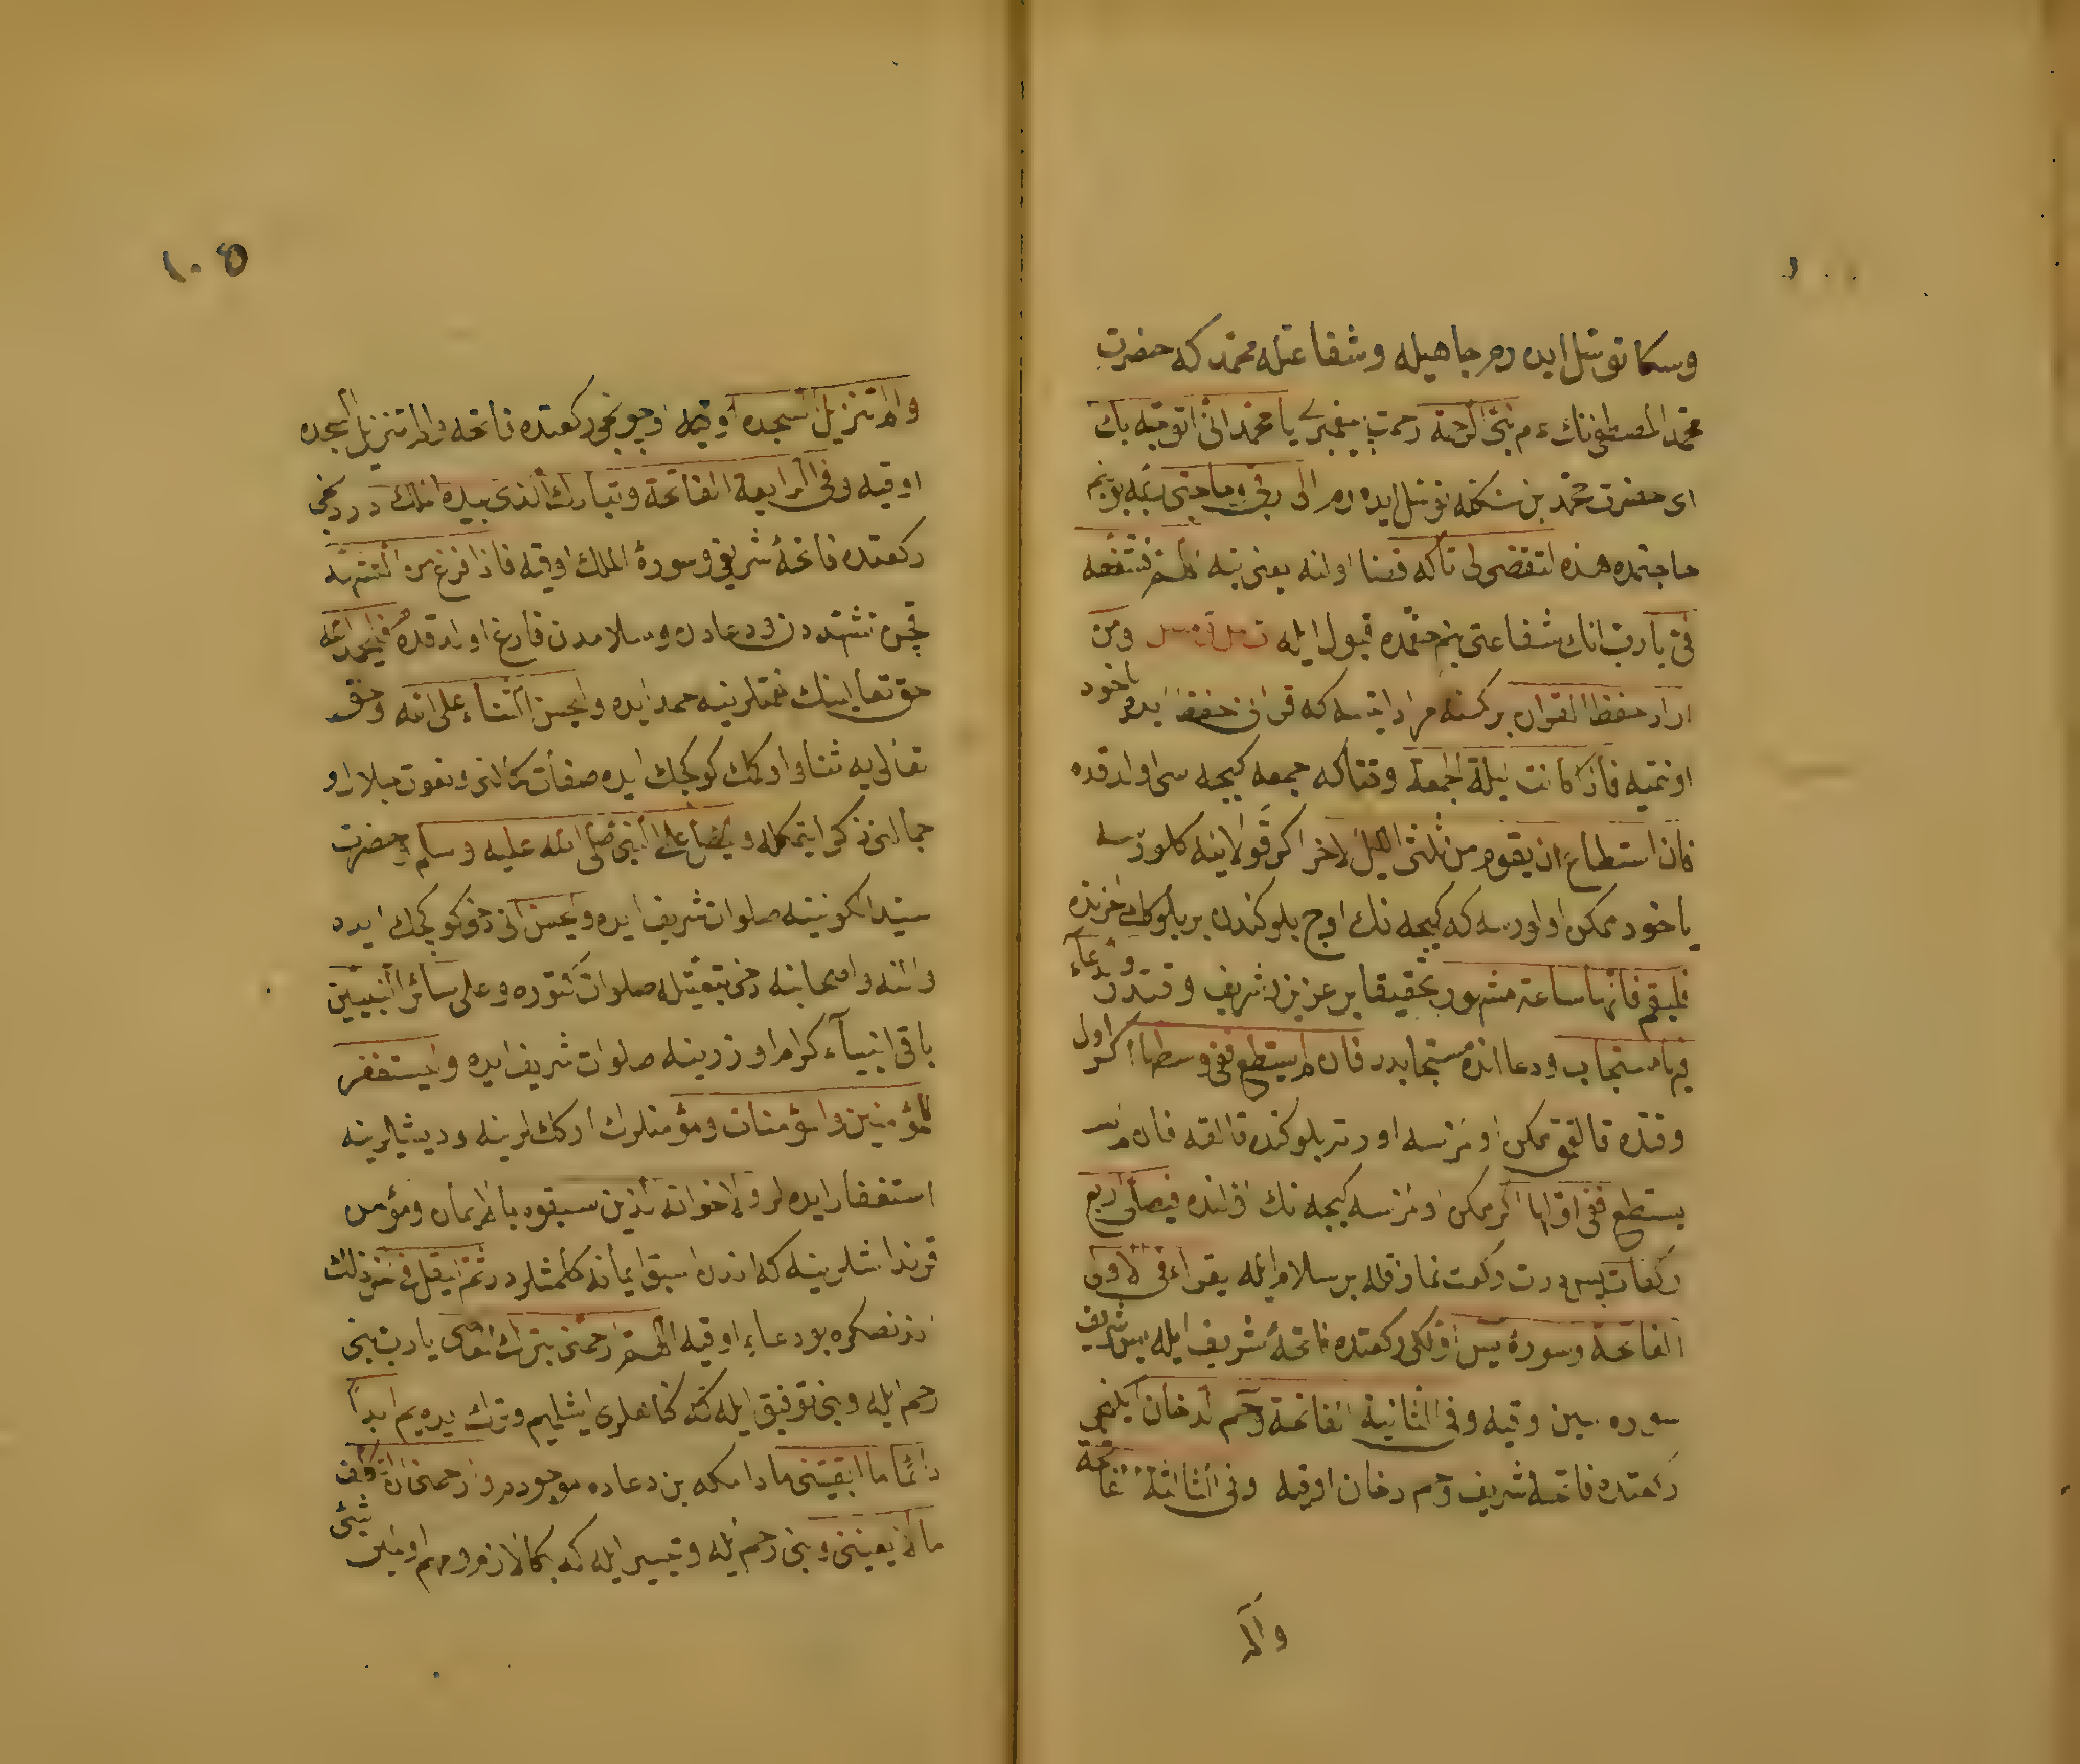 وسكا توسّل ايده رم جاهيله وشفاعتله محمّد كه حضرت
محمّد المصطفى نك م نبىّ الرحمة رحمت پيغمبرى يا محمّد انى اتوجّه بك
اى حضرت محمّد بن سنكله توسّل ايده رم الى ربّى فى حاجتى ربّمه بو بنم
حاجتمده هذه لتقضى لى تاكه قضا اولنه يعنى بته اللهمّ فشفّعه
فىّ يا ربّ انك شفاعتى بنم حقمده قبول ايله ومن
اراد حفظ القران بر كمسنه مراد ايتسه كه قرانى حفظ ايده ياخود
اوقميه فاذا كانت ليلة الجمعة وقتاكه جمعه كيجه سى اولدقده
فان استطاع ان يقوم من ثلث الليل الاخر اكر قولاينه كلورسه
ياخود ممكن اولورسه كه كيجه نك اوچ بلوكندن بر بلوكك اخرنده
فليقم فانها ساعة مشهوده تحقيقا بر عزيز شريف وقتدر والدعاء
فيها مستجاب ودعا انده مستجابدر فان لم يستطع ففى وسطها اكر اول
وقتده قالقمق ممكن اولمزسه اورته بلوكنده قالقه فان لم
يستطع ففى اولها اكر ممكن اولمزسه كيجه نك اولنده فيصلّى اربع
ركعات پس درت ركعت نماز قله بر سلام ايله يقراء فى الاولى
الفاتحة وسورة يس اولكى ركعتده فاتحۀ شريف ايله يس شريف
سوره سين اوقيه وفى الثانية الفاتحة وحم الدخان ايكنجى
ركعتده فاتحۀ شريف وحم دخان اوقيه وفى الثالثة الفاتحة
والم
١٠٥
والم تنزيل السجده اوقيه اوچونجى ركعتده فاتحه والم تنزيل السجده
اوقيه وفى الرابعة الفاتحة وتبارك الذى بيده الملك دردنجى
ركعتده فاتحۀ شريفى وسورۀ الملك اوقيه فاذا فرغ من التشهد
قچن تشهددن ودعادن وسلامدن فارغ اولدقده فليحمد الله
حق تعالينك نعمتلرينه حمد ايده وليحسن الثناء على الله وحق
تعالى يه ثناء اوكمك كوكچك ايده صفات كمالنى ونعوت جلال و
جمالنى ذكر ايتمكله وليصلّ على النبى صلى الله عليه وسلم وحضرت
سيد الكونينه صلوات شريف ايده وليحسن انى دخى كوكچك ايده
والنه واصحابنه دخى تبعيتله صلوات كتوره وعلى سائر النبيين
باقى انبيآء كرام اوزرينه صلوات شريف ايده وليستغفر
للمؤمنين والمؤمنات ومؤمنلرك اركك لرينه وديشيلرينه
استغفار ايده لر ولاخوانه الذين سبقوه بالايمان ومؤمن
قرنداشلرينه كه اندن اسبق ايمانه كلمشلردر ثمّ ليقل فى اخر ذلك
اندنصكره بو دعايى اوقيه اللهمّ ارحمنى بترك المعاصى يا ربّ بنى
رحم ايله وبنى توفيق ايله كه كناهلرى ايشليم وترك ايده يم ابدا
دائما ما ابقيتنى مادامكه بن دعاده موجودم وارحمنى ان اتكلف
ما لا يعنينى وبنى رحم ايله وتيسير ايله كه بكا لازم ومهم اولمين شئى